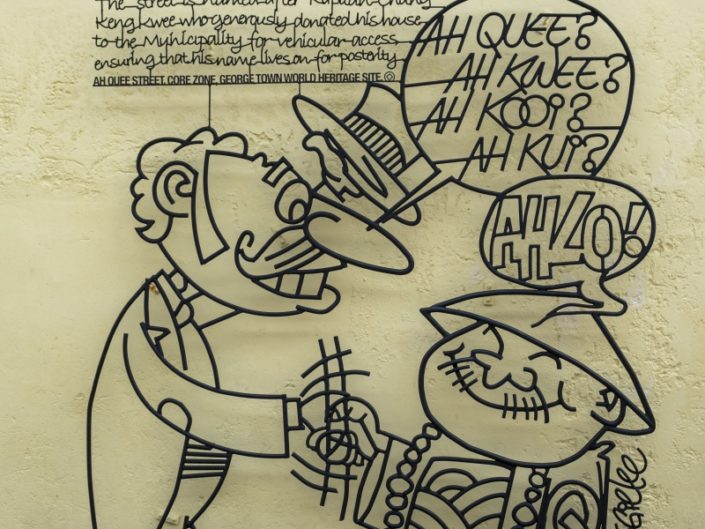 The street is named after Kapitan Chung
Keng Kwee who generously donated his house
to the Municipality for vehicular access
ensuring that his name lives on for posterity
AH QUEE STREET. CORE ZONE, GEORGE TOWN WORLD HERITAGE SITE.©
AH QUEE?
AH KWEE?
AH KOOI?
AH KUI?
AH LO!